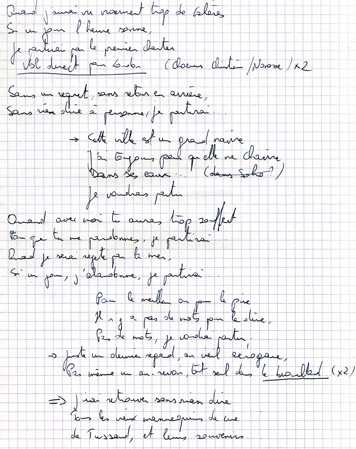 Quand j'aurai vu vraiment trop de galères
Si un jour l'heure sonne,
je partirai par le premier charter
Vol direct pour London (Choeurs Christian / Norose) x2
Sans un regret, sans retour en arrière,
Sans rien dire à personne, je partirai...
→ Cette ville est un grand navire
J'ai toujours peur qu'elle ne chavire
Dans ses eaux... (dans Soho ?)
Je voudrais partir
Quand avec moi tu auras trop souffert
Pour que tu me pardonnes, je partirai
Quand je serai rejeté par la mer,
Si un jour, j'abandonne, je partirai...
Pour le meilleur ou pour le pire
Il n'y a pas de mots pour le dire,
Pas de mots, je voudrais partir,
→ juste un dernier regard, un vieil aérogare,
Pas même un au revoir, tout seul dans le brouillard (x2)
⇒ J'irai retrouver sans rien dire
Tous les vieux mannequins de cire
de Tussaud, et leurs souvenirs